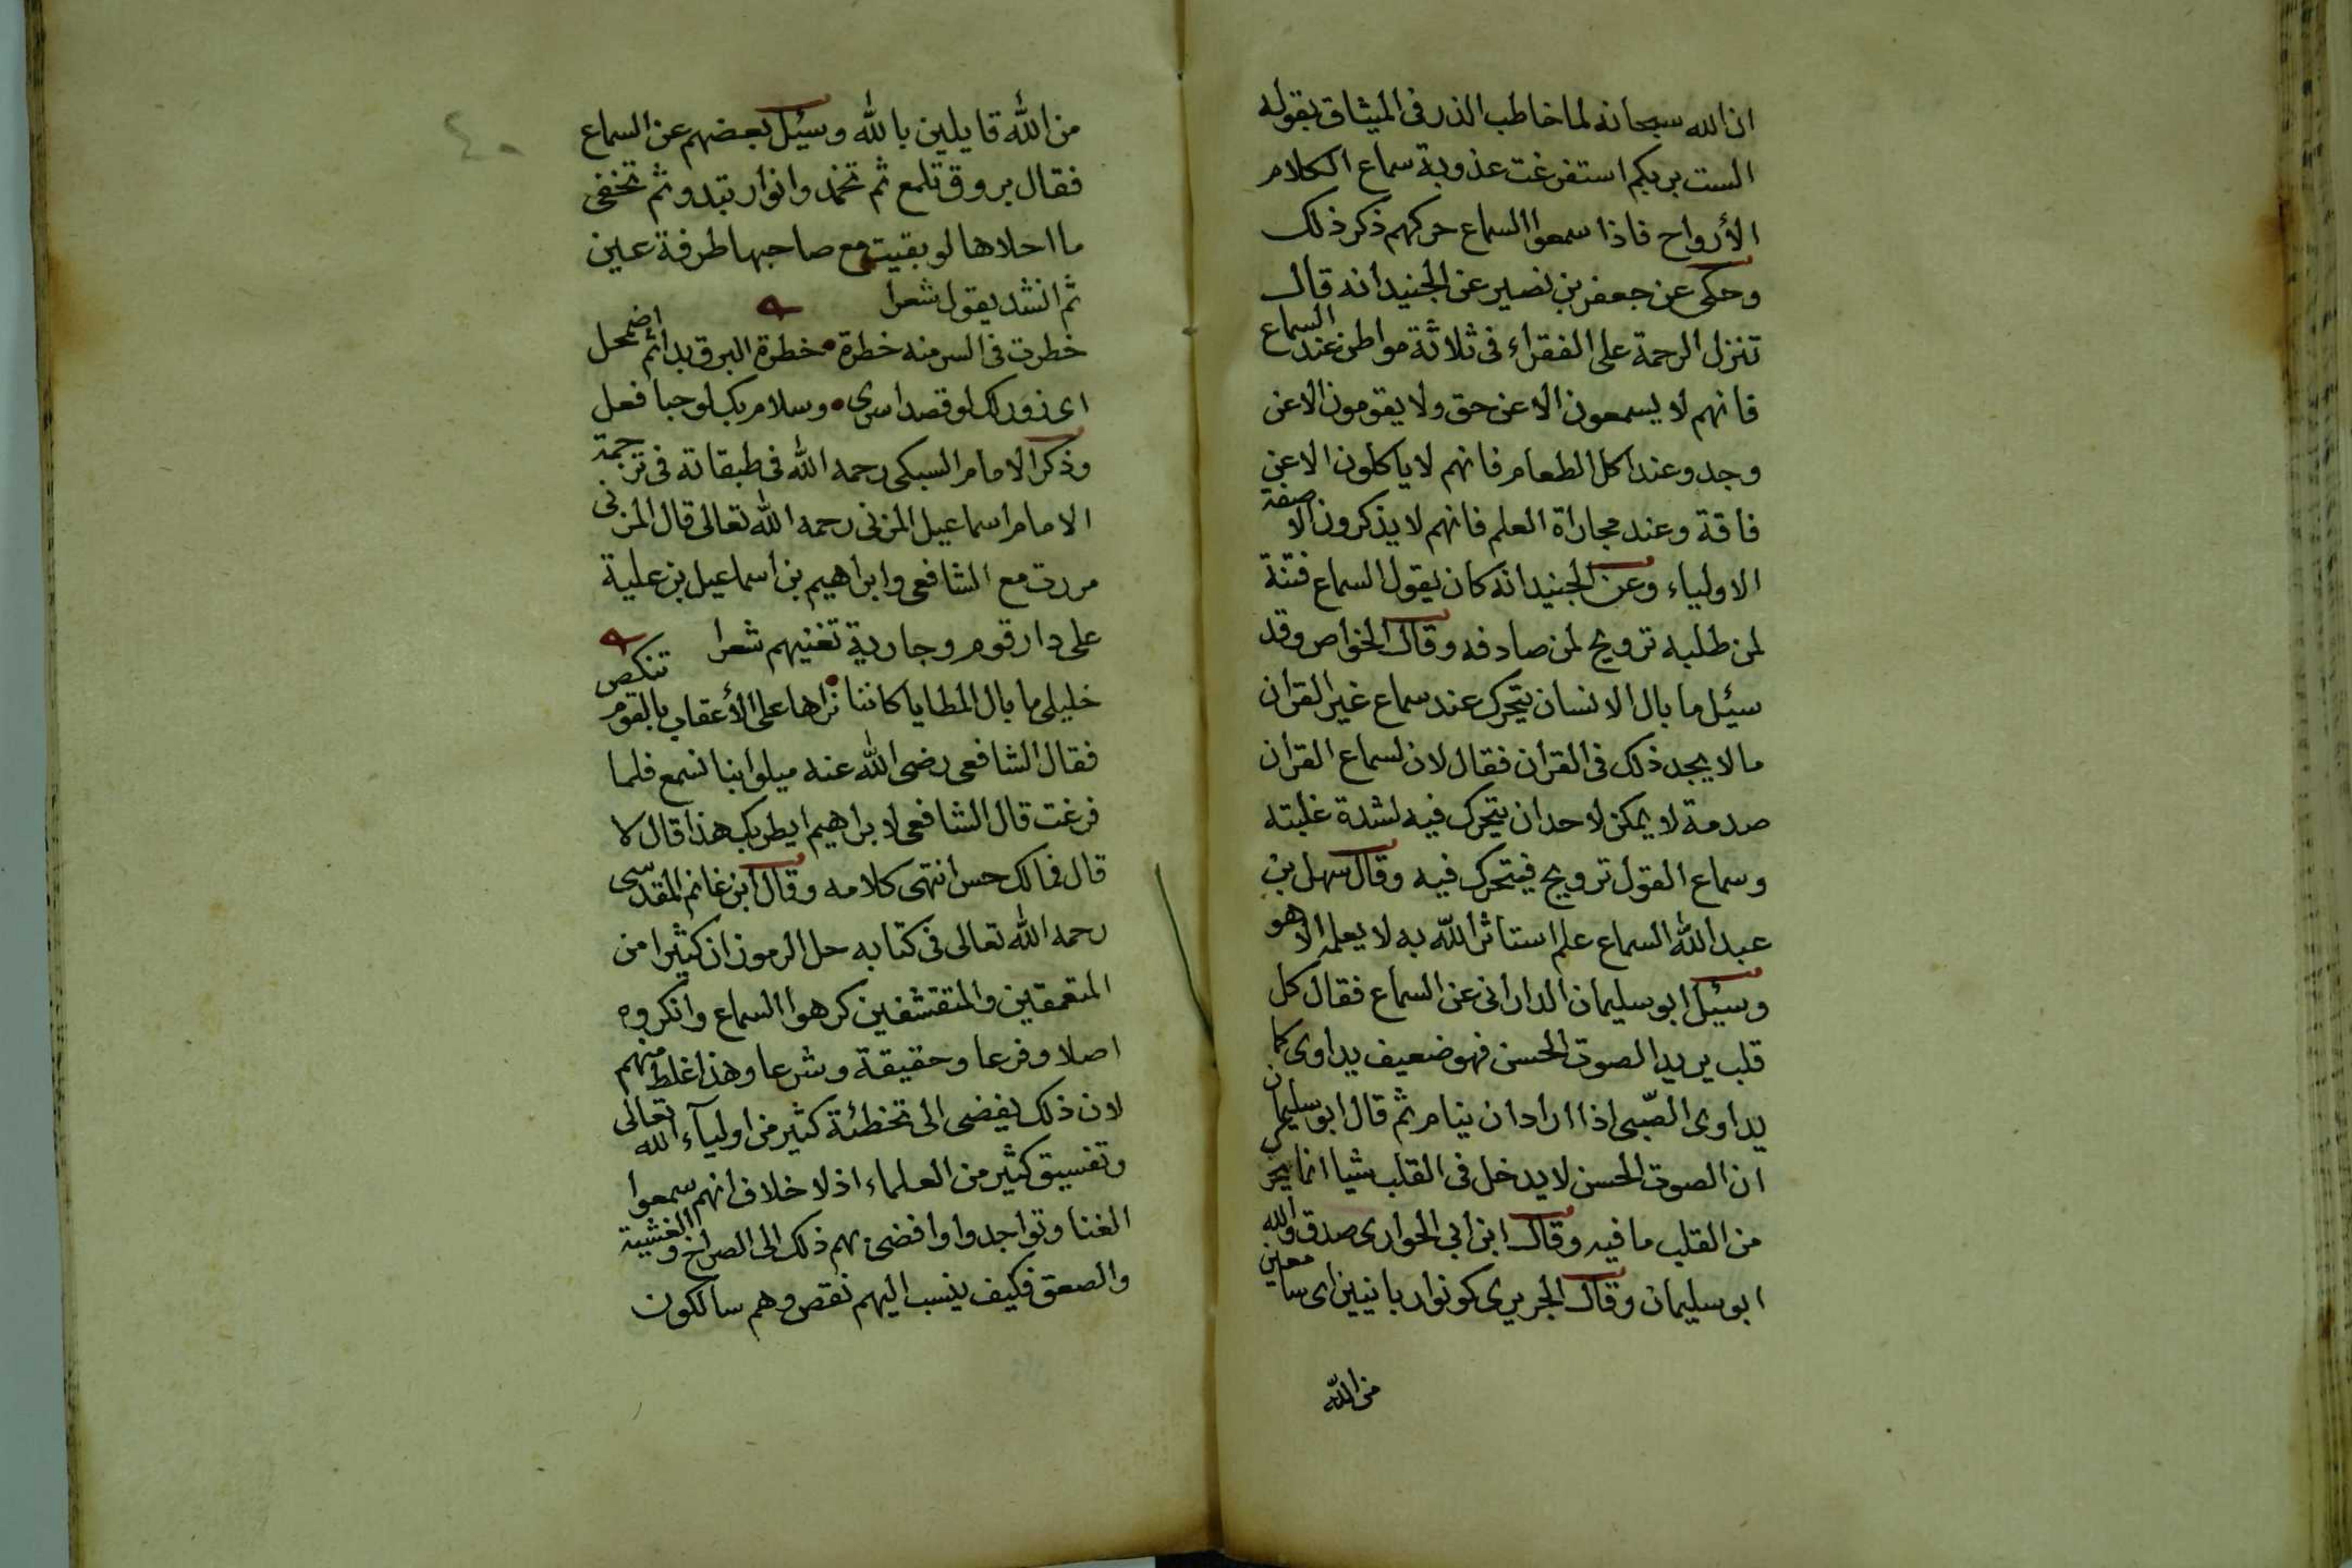 ان الله سبحانه لما خاطب الذر في الميثاق بقوله
الست بربكم استفرغت عذوبة سماع الكلام
الأرواح فاذا سمعوا السماع حركهم ذكر ذلك
وحكى عن جعفر بن نصير عن الجنيد انه قال
تنزل الرحمة على الفقراء في ثلاثة مواطن عند السماع
فانهم لا يسمعون الا عن حق ولا يقومون الا عن
وجد وعند اكل الطعام فانهم لا ياكلون الا عن
فاقة وعند مجاراة العلم فانهم لا يذكرون الا صفة
الاولياء وعن الجنيد انه كان يقول السماع فتنة
لمن طلبه ترويح لمن صادفه وقال الخواص وقد
سئيل ما بال الانسان يتحرك عند سماع غير القران
ما لا يجد ذلك في القرأن فقال لان لسماع القرأن
صدمة لا يمكن لاحد ان يتحرك فيه لشدة غلبته
وسماع القول ترويح فيتحرك فيه وقال سهل بن
عبد الله السماع علم استاثر الله به لا يعلمه الا هو
وسئيل ابو سليمان الداراني عن السماع فقال كل
قلب يريد الصوت الحسن فهو ضعيف يداوى كما
يداوى الصّبي اذا اراد ان ينام ثم قال ابو سليمان
ان الصوت الحسن لا يدخل في القلب شيا انما يحرك
من القلب ما فيه وقال ابن ابي الحوارى صدق والله
ابو سليمان وقال الجريرى كونوا ربانيين اى سامعين
من الله
٤٠
من الله قايلين بالله وسئيل بعضهم عن السماع
فقال بروق تلمع ثم تخمد وانوار تبدو ثم تخفى
ما احلاها لو بقيت مع صاحبها طرفة عين
ثم انشد يقول شعرا
خطرت في السر منه خطرة خطرة البرق بدا ثم اضمحل
اى زور لك لو قصدا سرى وسلام بك لو حبا فعل
وذكر الامام السبكى رحمه الله في طبقاته في ترجمة
الامام اسماعيل المزنى رحمه الله تعالى قال المزنى
مررت مع الشافعى وابراهيم بن اسماعيل بن علية
على دار قوم وجارية تغنيهم شعرا
خليلى ما بال المطايا كاننا نراها على الأعقاب بالقوم تنكص
فقال الشافعى رضى الله عنه ميلوا بنا نسمع فلما
فرغت قال الشافعى لابراهيم ايطربك هذا قال لا
قال فمالك حس انتهى كلامه وقال ابن غانم المقدسى
رحمه الله تعالى في كتابه حل الرموز ان كثيرا من
المتعمقين والمتقشفين كرهوا السماع وانكروه
اصلا وفرعا وحقيقة وشرعا وهذا غلط منهم
لان ذلك يفضى الى تخطئة كثير من اوليآء الله تعالى
وتفسيق كثير من العلماء اذ لا خلاف انهم سمعوا
الغنا وتواجدوا وافضى بهم ذلك الى الصراخ والغشية
والصعق فكيف ينسب اليهم نقص وهم سالكون